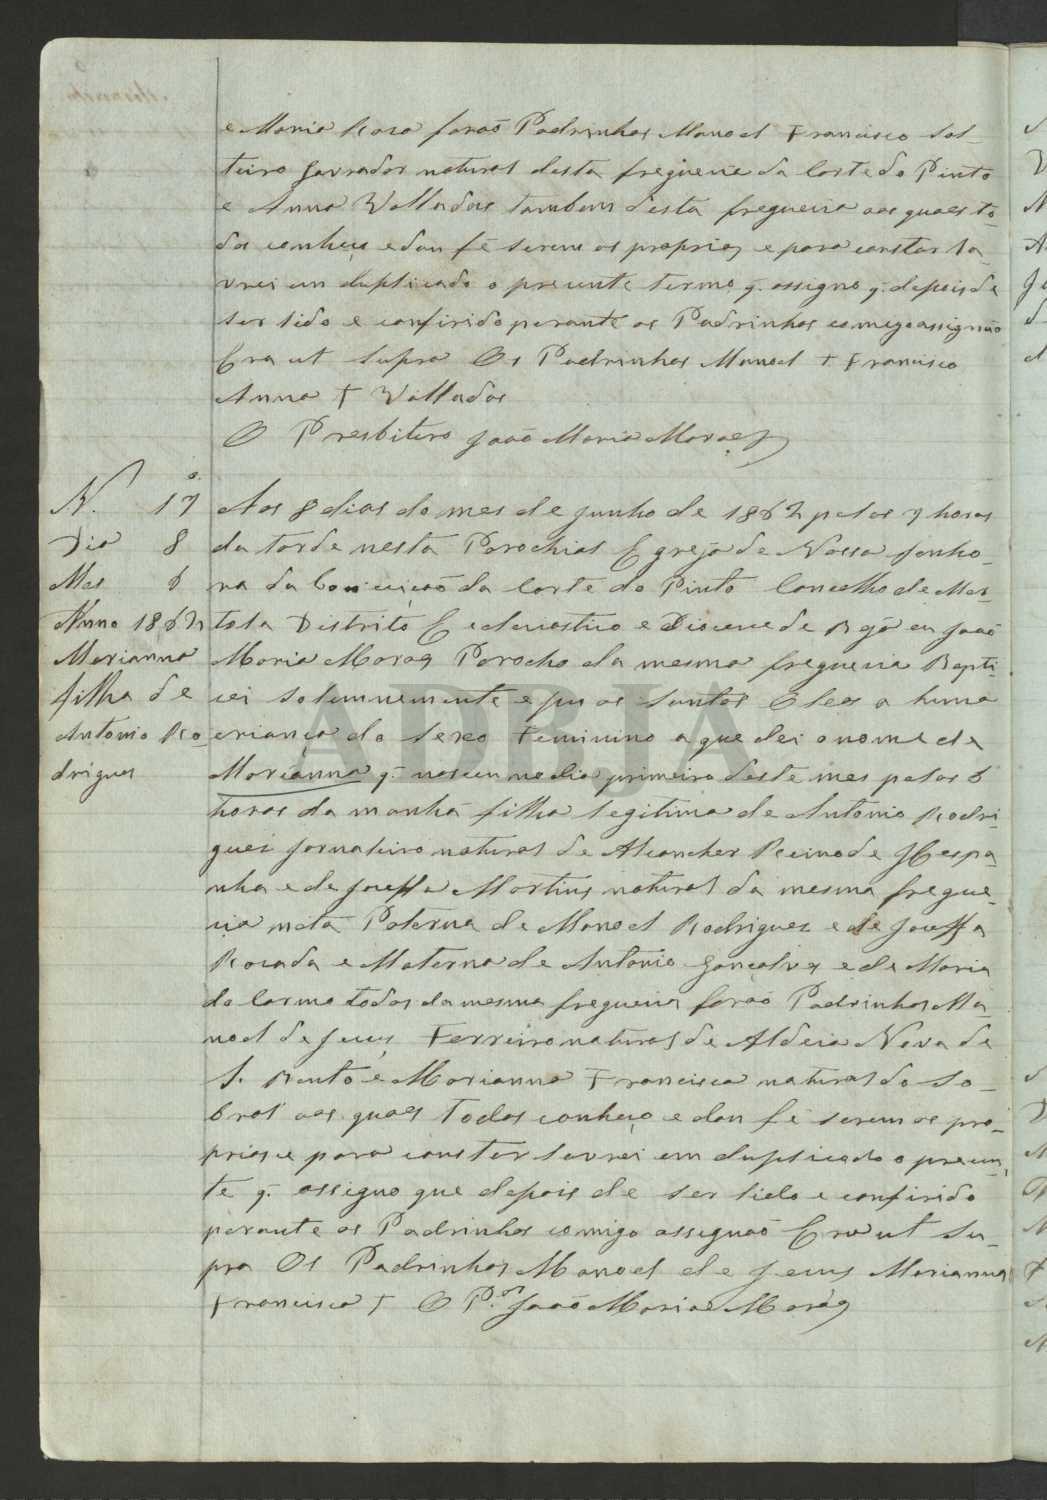 e Maria Rosa forao Padrinhos Manoel Francisco sol-
teiro Lavrador natural desta freguezia da Corte do Pinto
e Anna Valladas tambem desta freguezia aos quaes to
dos conheço e dou fé serem os proprios e para constar la-
vrei em duplicado o prezente termo q. assigno q. depois de
ser lido e confirido perante os Padrinhos comigo assignão
Era ut supra Os Padrinhos Manoel + Francisco
Anna + Valladas
O Presbitero João Maria Moraes
N. 17
Dia 8
Mes 6
Anno 1862
Marianna
filha de
Antonio Ro-
drigues
Aos 8 dias do mes de junho de 1862 pelas 7 horas
da tarde nesta Parochial Egreja de Nossa Senho-
ra da Conceição da Corte do Pinto Concelho de Mer-
tola Distrito Ecclesiastico e Diocese de Beja eu João
Maria Moraes Parocho da mesma freguezia Bapti-
cei solemnemente e puz os Santos Oleos a huma
criança do sexo Feminino a que dei o nome de
Marianna q. nasceu no dia primeiro deste mes pelas 6
horas da manhã filha legitima de Antonio Rodri-
gues Jornaleiro natural de Reino de Hespa-
nha e de Joseffa Martins natural da mesma fregue-
zia neta Paterna de Manoel Rodrigues e de Joseffa
Rosada e Materna de Antonio Gonçalves e de Maria
do Carmo todos da mesma freguezia forão Padrinhos Ma-
noel de Jesus Ferreiro natural de Aldeia Nova de
S. Bento e Marianna Francisca natural do So-
bral aos quaes todos conheço e dou fé serem os pro-
prios e para constar lavrei em duplicado o prezen-
te q. assigno que depois de ser lido e confirido
perante os Padrinhos comigo assignão Era ut su-
pra Os Padrinhos Manoel de Jesus Marianna
Francisca + O P.or João Maria Moraes
ADBJA